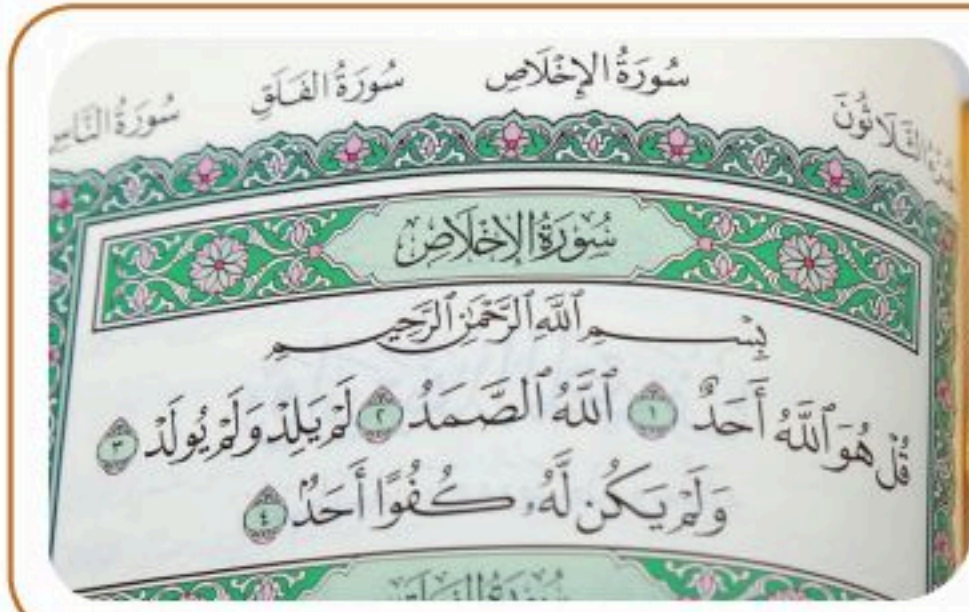 سُورَةُ الإِخْلَاصِ سُورَةُ الفَلَقِ سُورَةُ
الثَّلَاثُونَ
سُورَةُ الإِخْلَاصِ
بِسْمِ ٱللَّهِ ٱلرَّحْمَٰنِ ٱلرَّحِيمِ
قُلْ هُوَ ٱللَّهُ أَحَدٌ ١ ٱللَّهُ ٱلصَّمَدُ ٢ لَمْ يَلِدْ وَلَمْ يُولَدْ ٣
وَلَمْ يَكُن لَّهُۥ كُفُوًا أَحَدٌۢ ٤